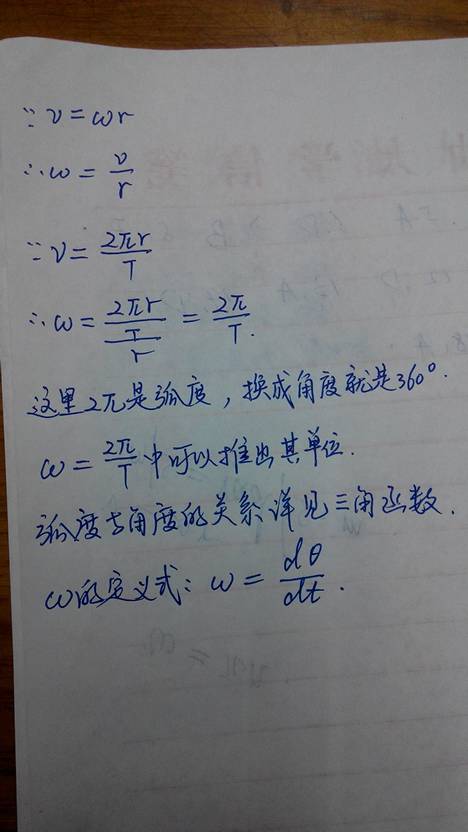 ∵ v = ωr
∴ ω = v/r
∵ v = 2πr/T
∴ ω = 2πr/T/r = 2π/T.
这里2π是弧度，换成角度就是360°.
ω = 2π/T 中可以推出其单位.
弧度与角度的关系详见三角函数.
ω的定义式: ω = dθ/dt.